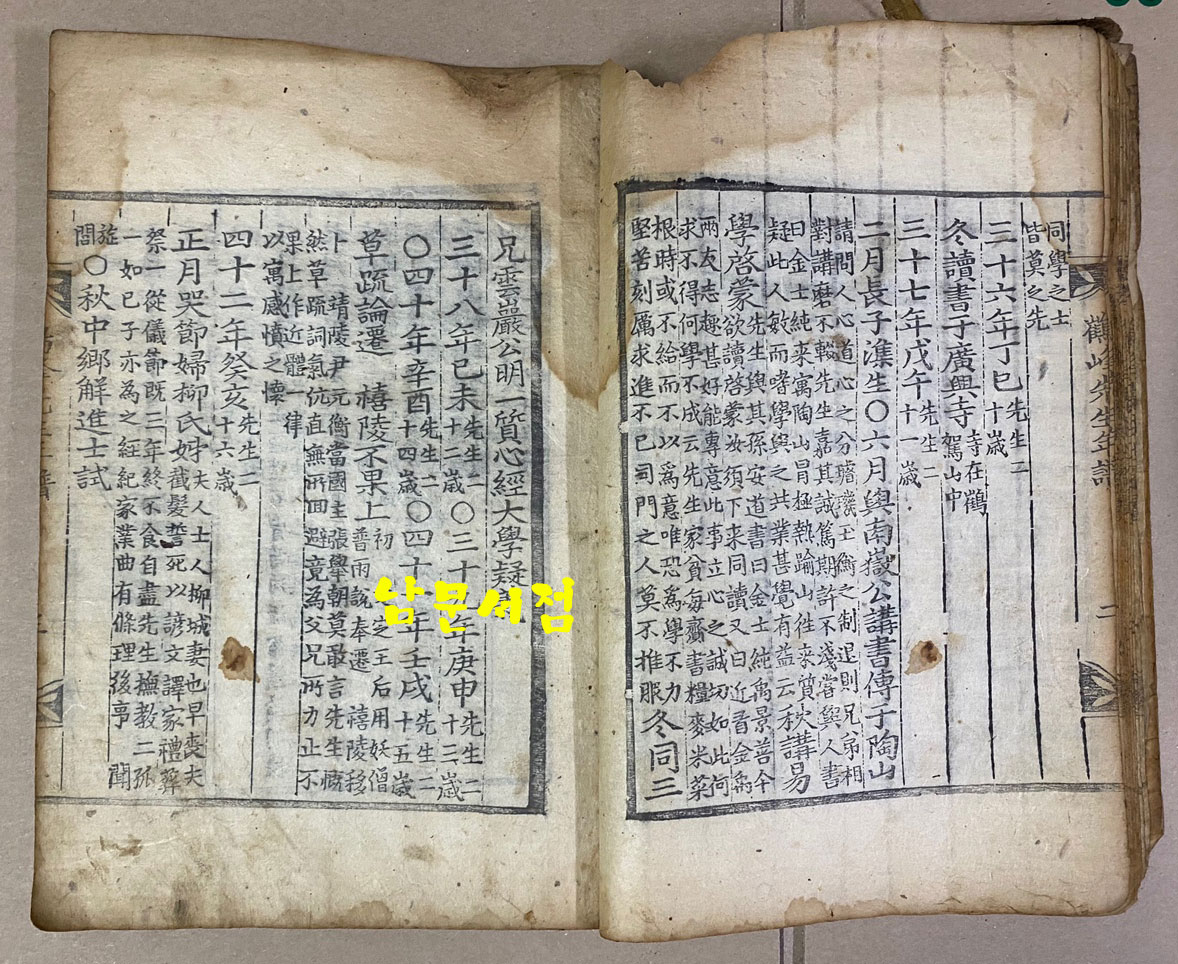 鶴峯先生年譜 二
同學之士
皆莫之先
三十六年丁巳 先生二十歲
冬讀書于廣興寺 寺在鶴駕山中
三十七年戊午 先生二十一歲
二月長子潗生〇六月與南嶽公講書傳于陶山
請問人心道心之分璿璣玉衡之制退則兄弟相
對講磨不輟先生嘉其誠篤期許不淺嘗與人書
曰金士純來寓陶山冒極熱踰山往來質
疑此人敏而嗜學與之共業甚覺有益云 秋講易
學啓蒙 先生與其孫安道書曰金士純禹景善今
欲讀啓蒙汝須下來同讀又曰近看金禹
兩友志趣甚好能專意此事立心之誠切如此何
求不得何學不成云先生家貧每齎書糧麥米菜
根時或不給而不以爲意唯恐爲學不力
堅苦刻厲求進不已同門之人莫不推服 冬同三
兄雲巖公明一質心經大學疑
三十八年己未 先生二十二歲 〇三十年庚申 先生二十三歲
〇四十年辛酉 先生二十四歲 〇四十年壬戌 先生二十五歲
草疏論遷 禧陵不果上 初定王后用妖僧
普雨說奉遷 禧陵移
卜 靖陵尹元衡當國主張擧朝莫敢言先生慨
然草疏詞氣伉直無所回避竟為父兄所力止不
果上作近體一律
以寓感憤之懷
四十二年癸亥 先生二十六歲
正月哭節婦柳氏姊 夫人士人柳城妻也早喪夫
截髮誓死以諺文譯家禮葬
祭一從儀節既三年終不食自盡先生撫教二孤
一如己子亦為之經紀家業曲有條理後事 聞
旌
閭〇秋中鄉解進士試
남문서점